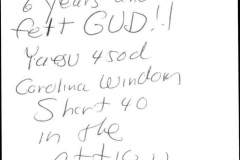 6 years and
felt GUD!!
Yaesu 450d
Carolina Windom
Short 40
in the
attic